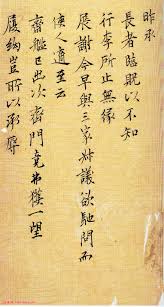 昨承
長者臨貺以不知
行李所止無緣
展謝今早與三家叔議欲馳問而
使人適至云
齋艦已出次齊門竟弗獲一望
履絇豈所以承辱